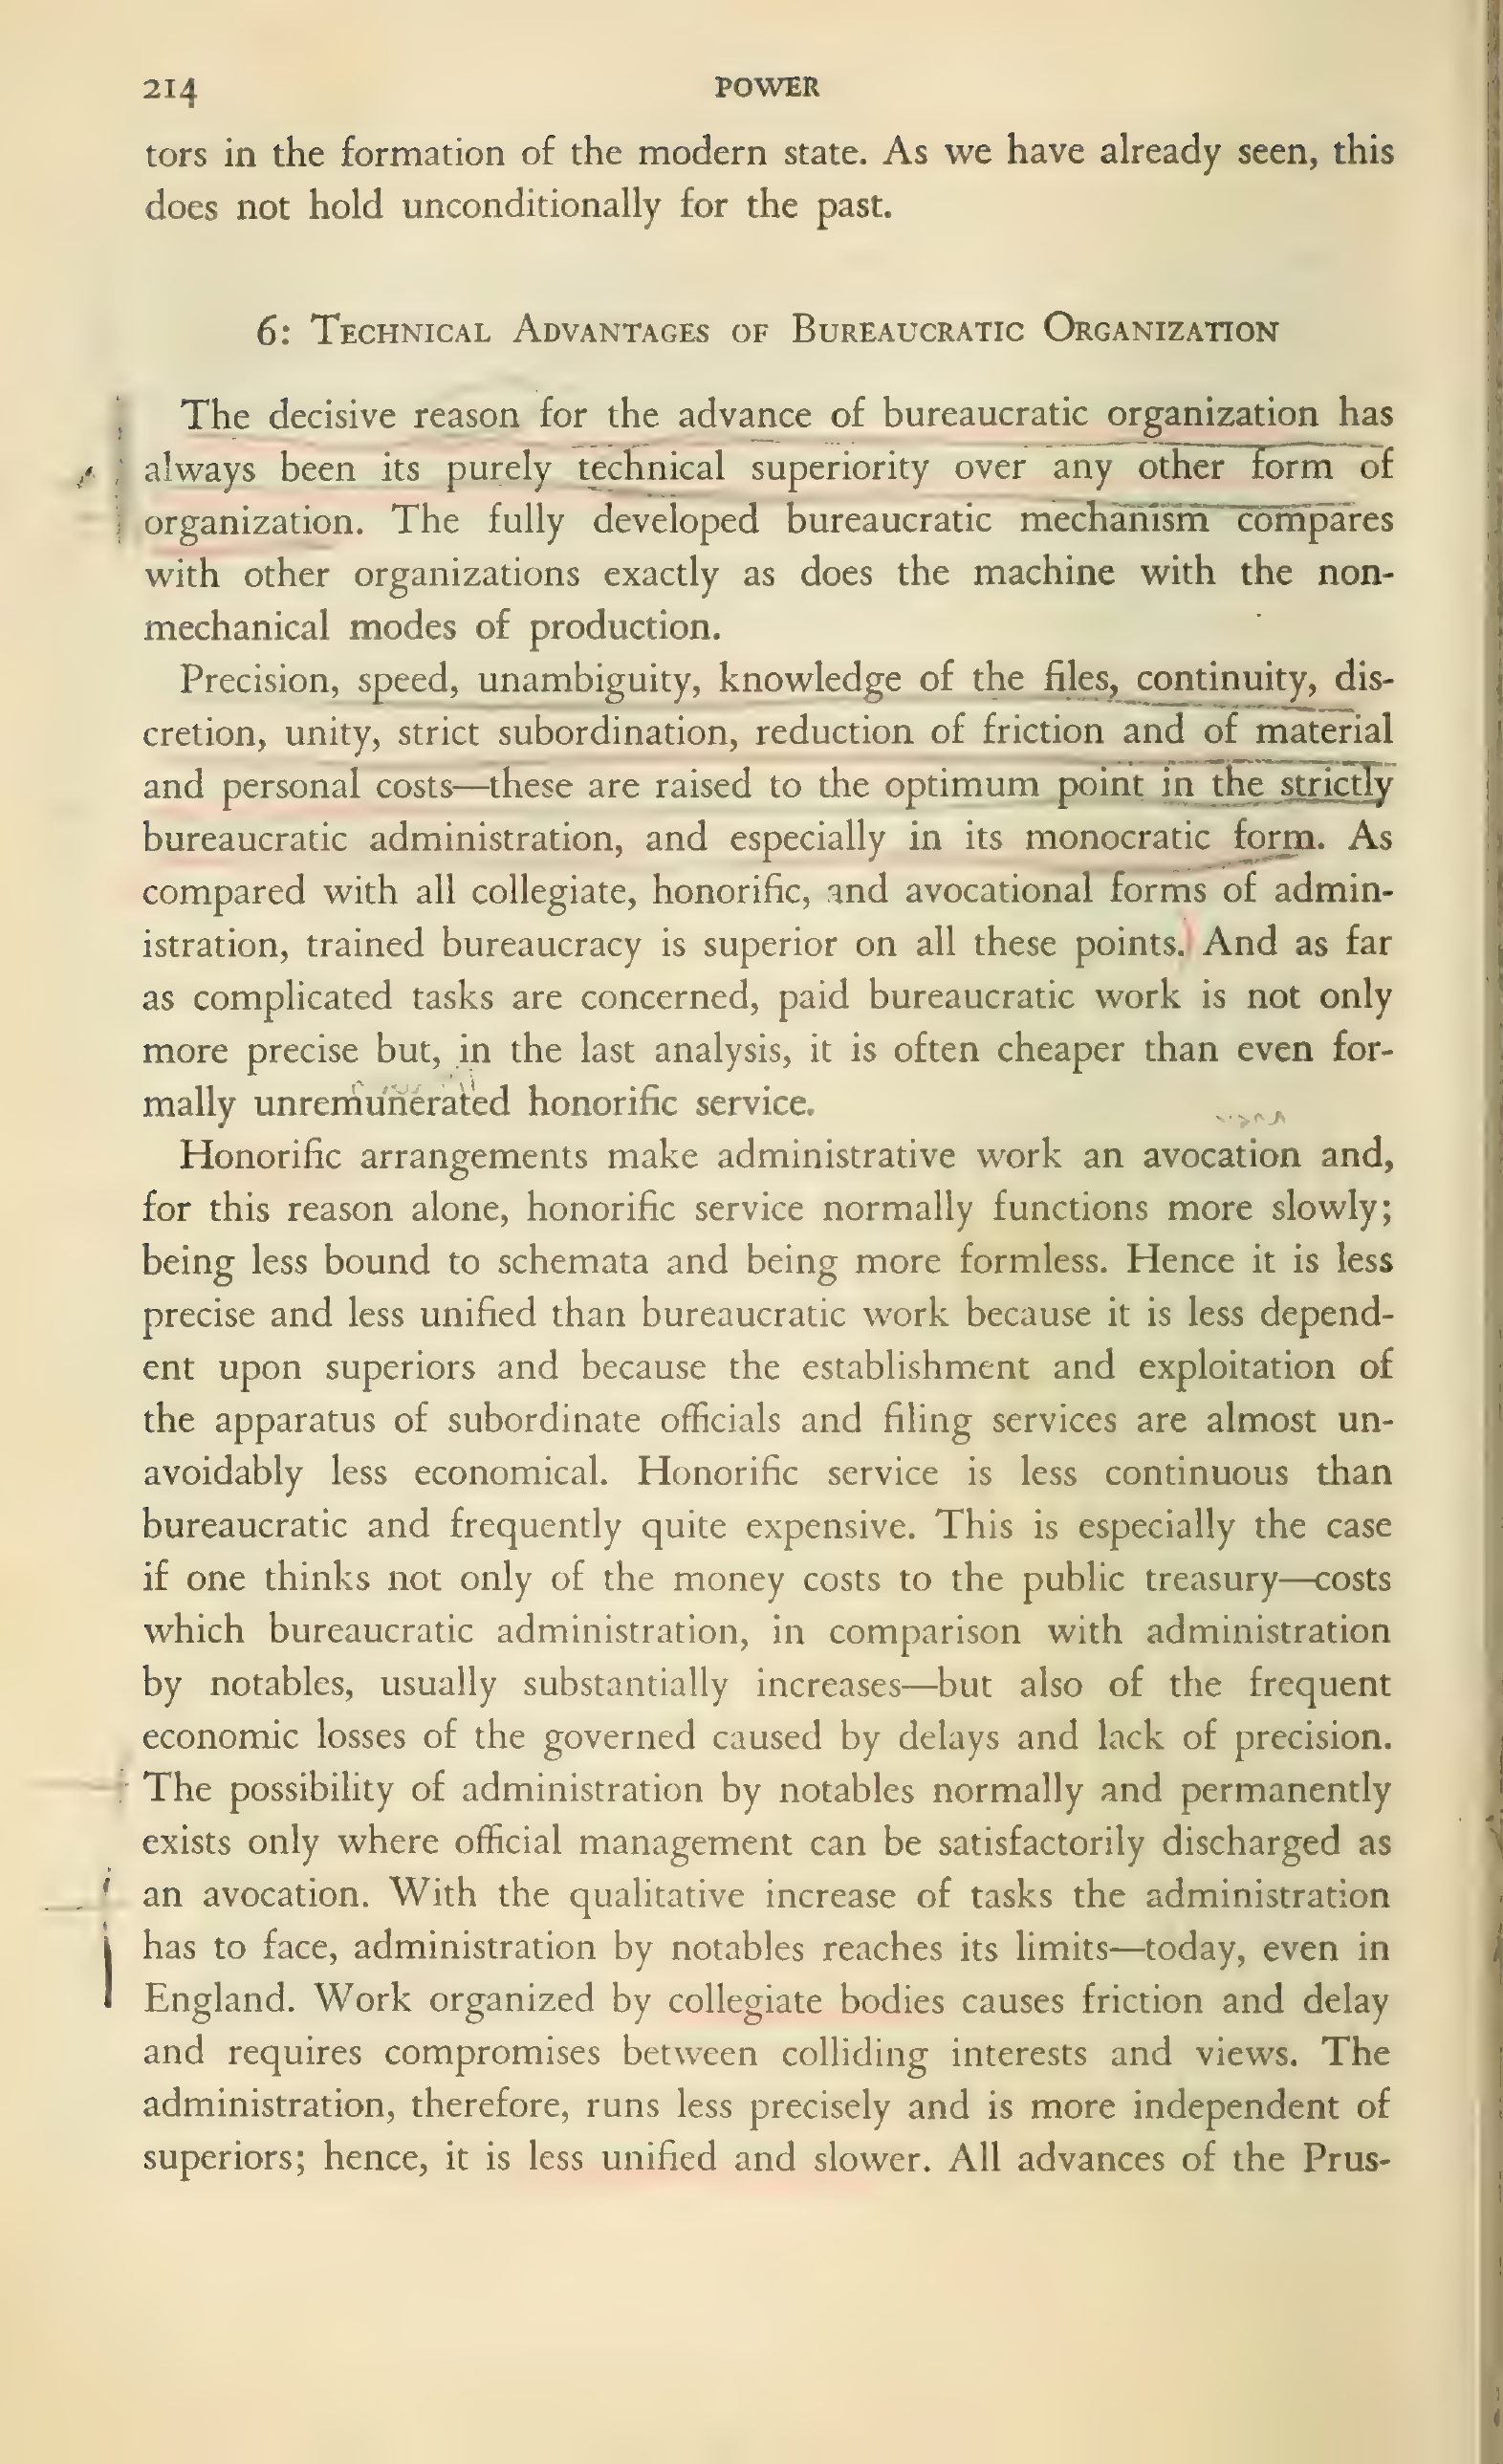 214 POWER
tors in the formation of the modern state. As we have already seen, this
does not hold unconditionally for the past.
6: Technical Advantages of Bureaucratic Organization
The decisive reason for the advance of bureaucratic organization has
always been its purely technical superiority over any other form of
organization. The fully developed bureaucratic mechanism compares
with other organizations exactly as does the machine with the non-
mechanical modes of production.
Precision, speed, unambiguity, knowledge of the files, continuity, dis-
cretion, unity, strict subordination, reduction of friction and of material
and personal costs—these are raised to the optimum point in the strictly
bureaucratic administration, and especially in its monocratic form. As
compared with all collegiate, honorific, and avocational forms of admin-
istration, trained bureaucracy is superior on all these points. And as far
as complicated tasks are concerned, paid bureaucratic work is not only
more precise but, in the last analysis, it is often cheaper than even for-
mally unremunerated honorific service.
Honorific arrangements make administrative work an avocation and,
for this reason alone, honorific service normally functions more slowly;
being less bound to schemata and being more formless. Hence it is less
precise and less unified than bureaucratic work because it is less depend-
ent upon superiors and because the establishment and exploitation of
the apparatus of subordinate officials and filing services are almost un-
avoidably less economical. Honorific service is less continuous than
bureaucratic and frequently quite expensive. This is especially the case
if one thinks not only of the money costs to the public treasury—costs
which bureaucratic administration, in comparison with administration
by notables, usually substantially increases—but also of the frequent
economic losses of the governed caused by delays and lack of precision.
The possibility of administration by notables normally and permanently
exists only where official management can be satisfactorily discharged as
an avocation. With the qualitative increase of tasks the administration
has to face, administration by notables reaches its limits—today, even in
England. Work organized by collegiate bodies causes friction and delay
and requires compromises between colliding interests and views. The
administration, therefore, runs less precisely and is more independent of
superiors; hence, it is less unified and slower. All advances of the Prus-